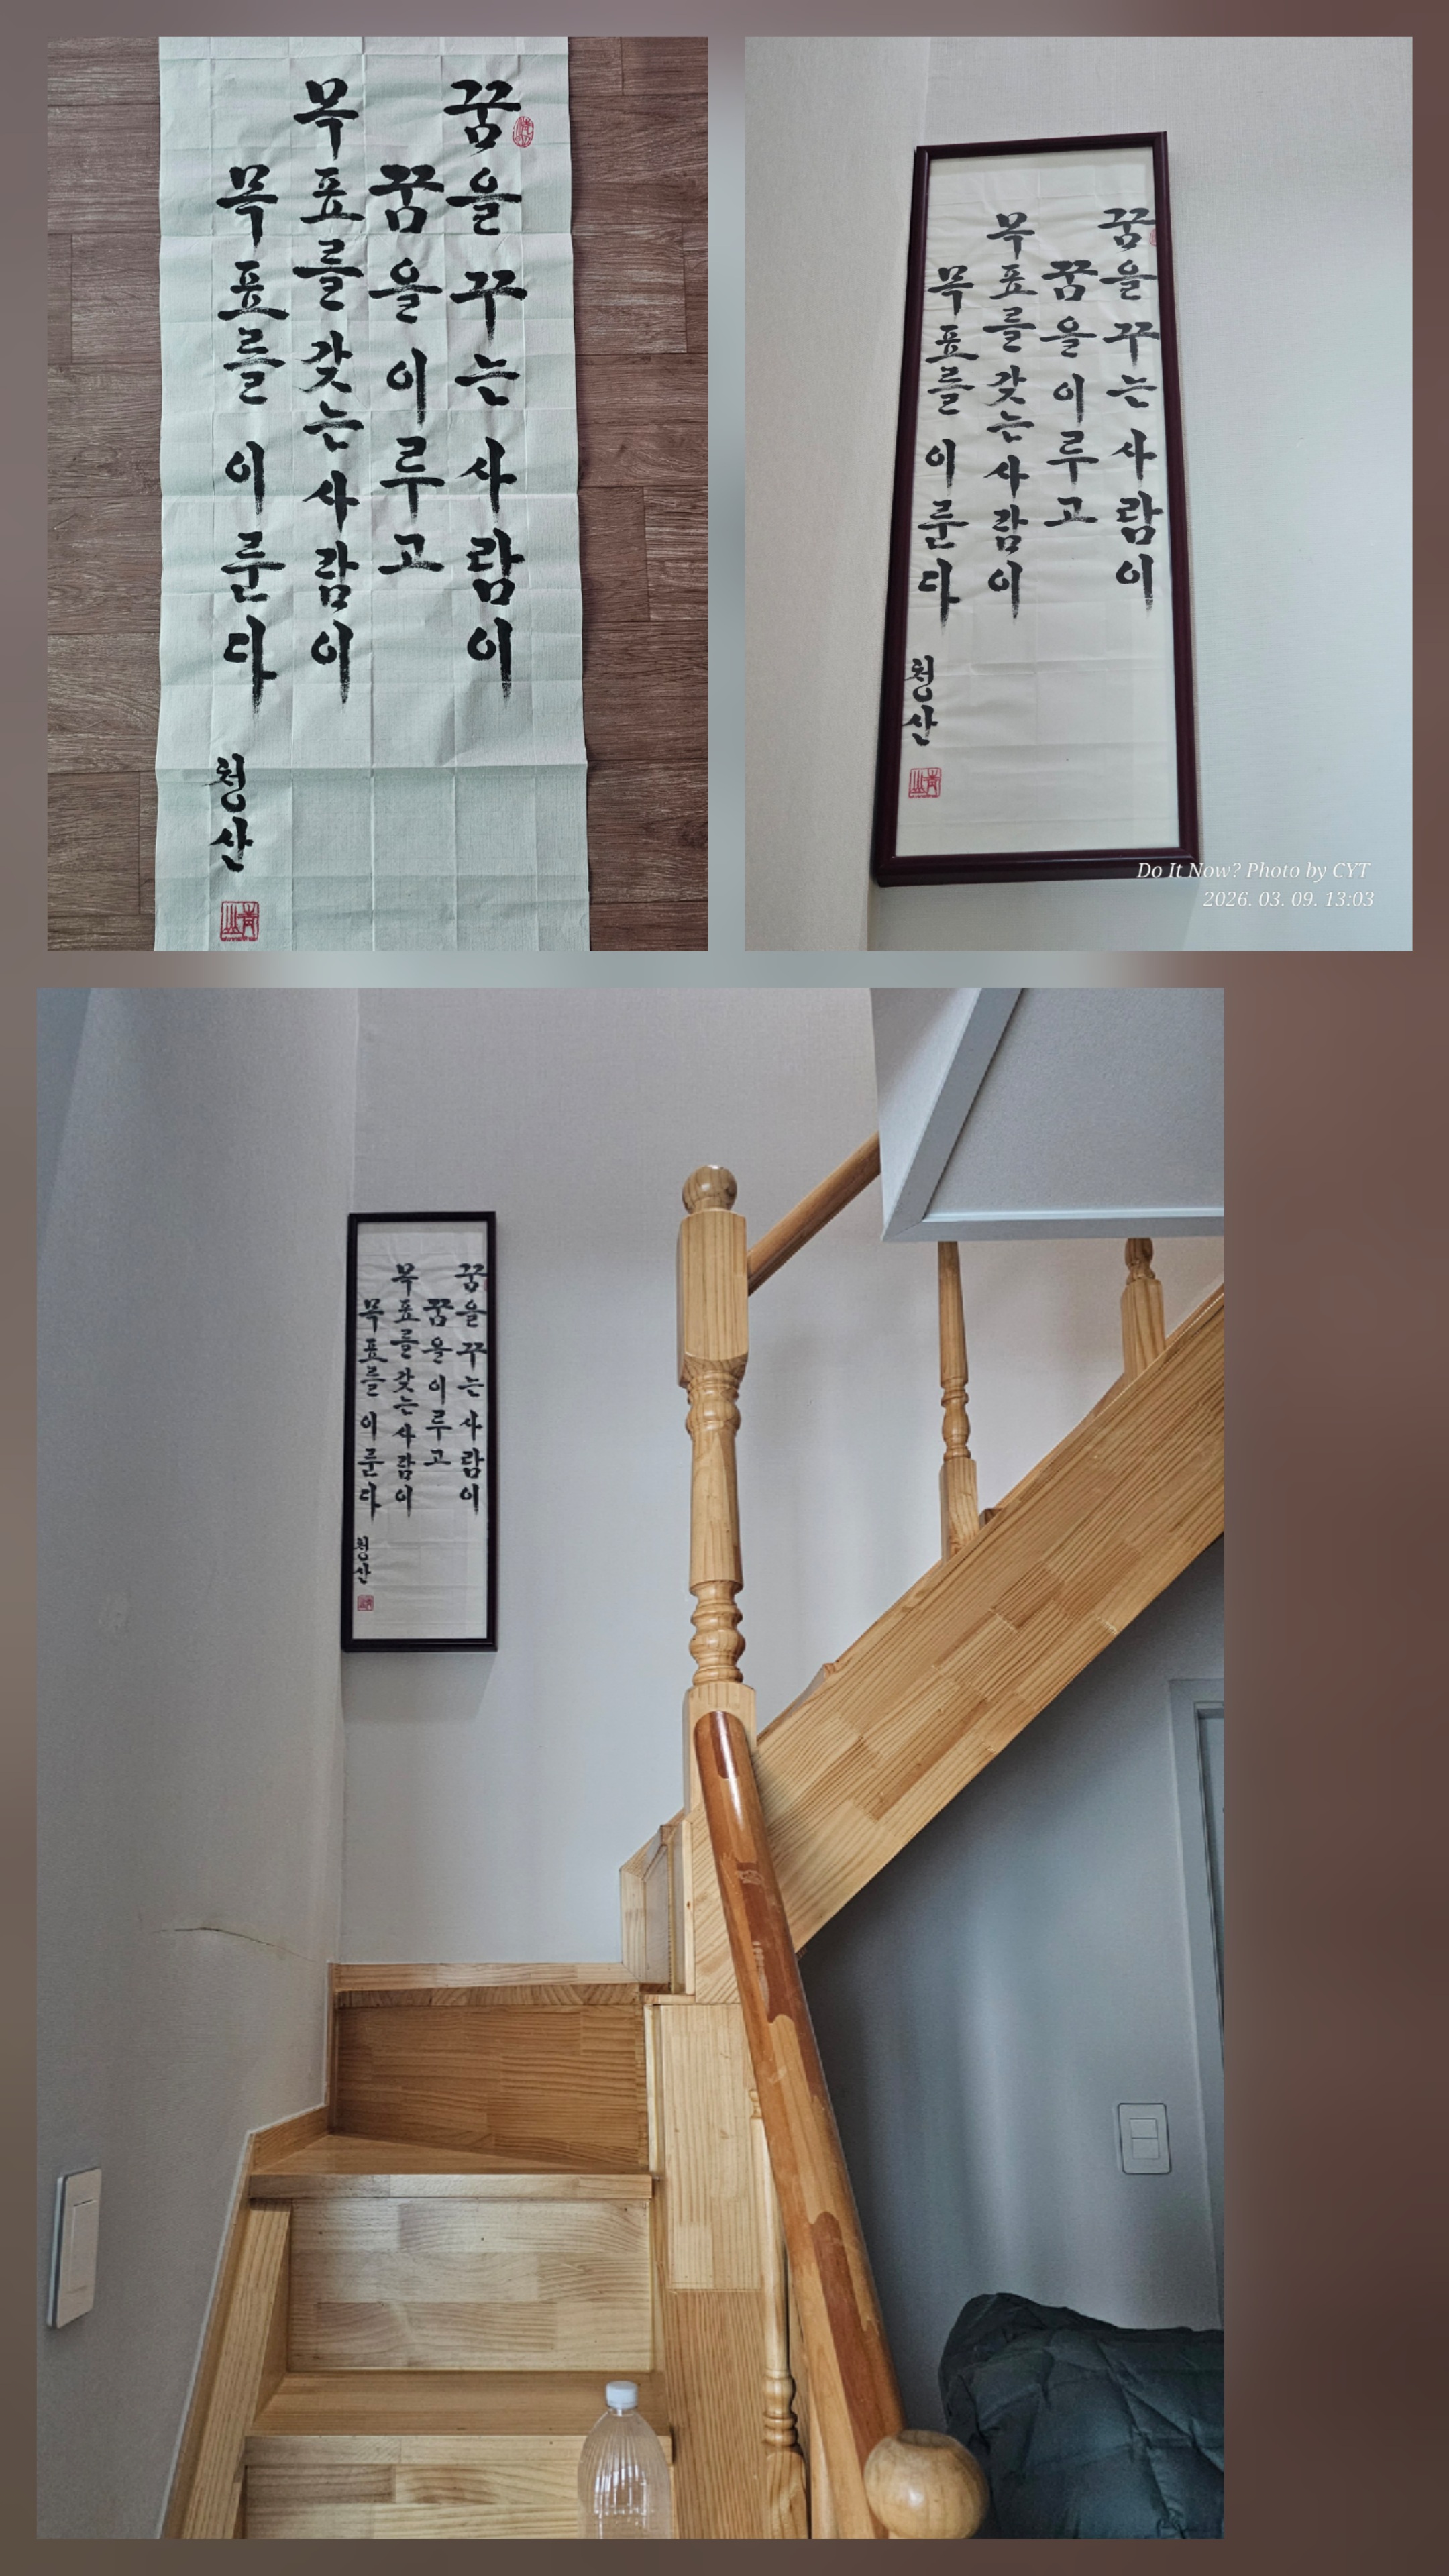 꿈을 꾸는 사람이
꿈을 이루고
목표를 갖는 사람이
목표를 이룬다
청산
靑山
꿈을 꾸는 사람이
꿈을 이루고
목표를 갖는 사람이
목표를 이룬다
청산
靑山
Do It Now? Photo by CYT
2026. 03. 09. 13:03
꿈을 꾸는 사람이
꿈을 이루고
목표를 갖는 사람이
목표를 이룬다
청산